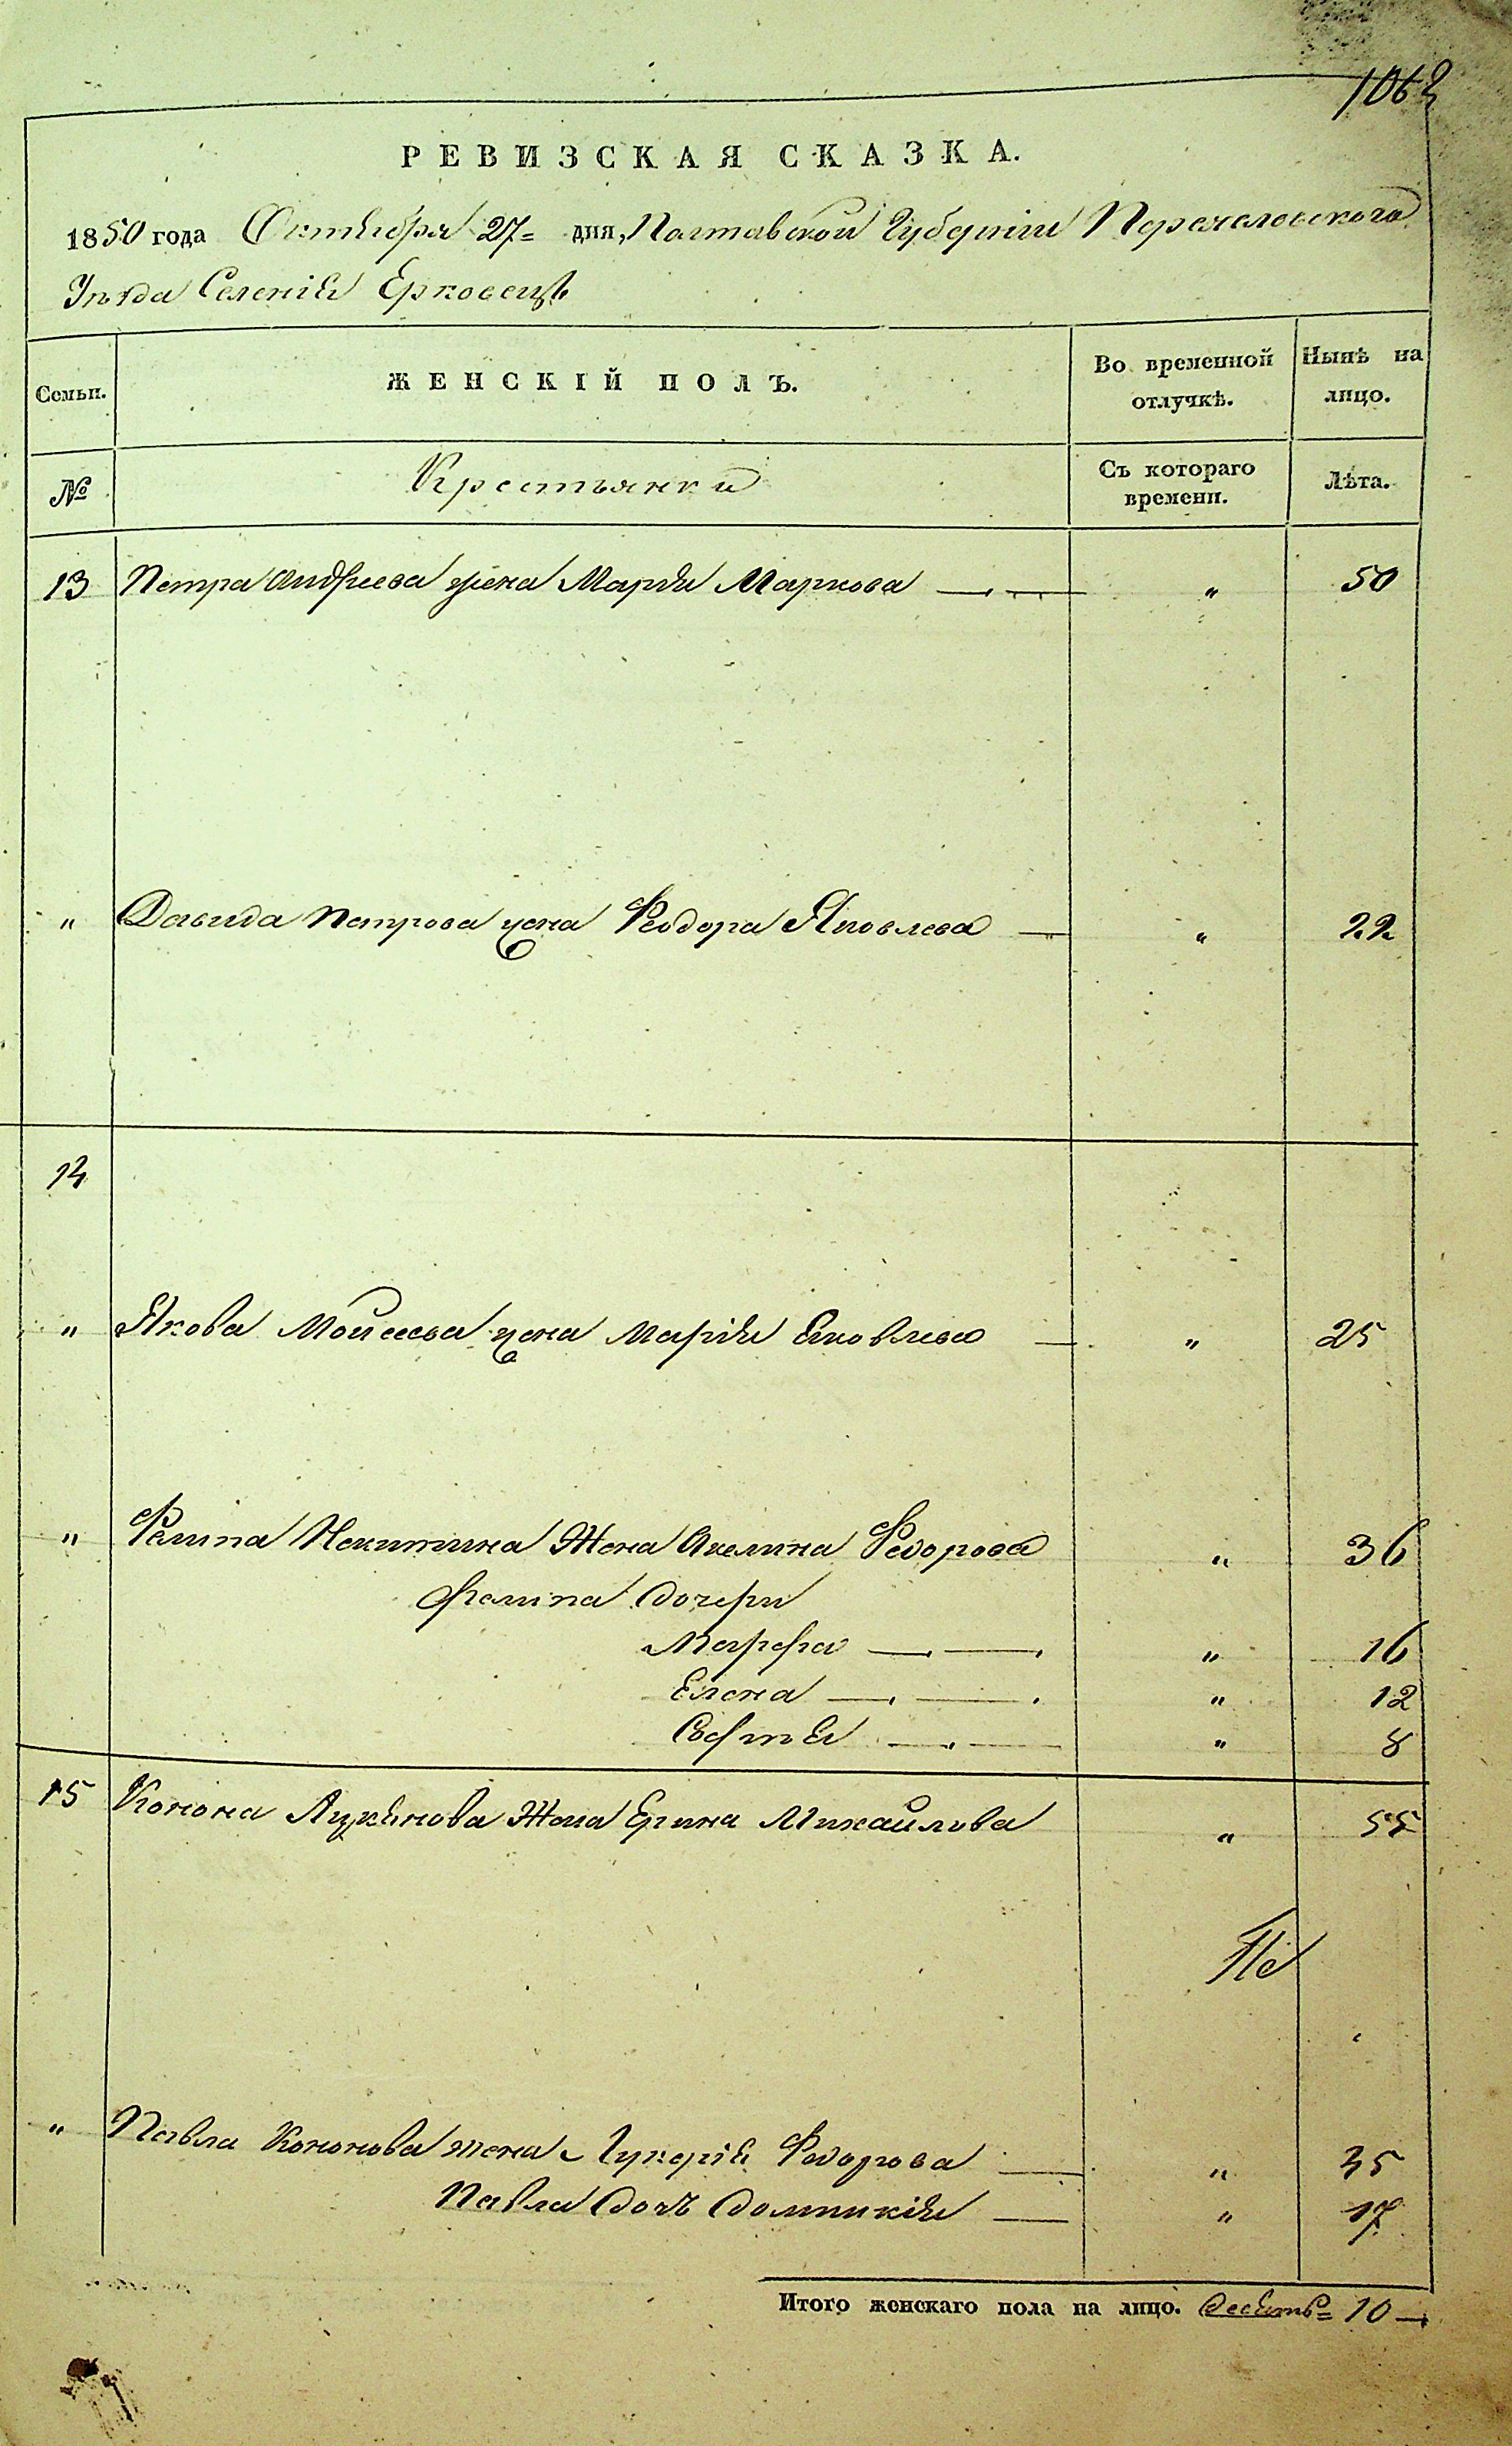 1062
РЕВИЗСКАЯ СКАЗКА.
1850 года Октября 27 = дня, Полтавской Губерніи Переяславскаго
Уезда Селенія Ерковець
Семьи. ЖЕНСКІЙ ПОЛЪ. Во временной отлучкѣ. Нынѣ на лицо.
№ Крестьянки Съ котораго времени. Лѣта.
13 Петра Андреева жена Марія Маркова — „ 50
„ Давида Петрова жена Феодора Яковлева — „ 22
14
„ Якова Мойсеева жена Марія Яковлева — „ 25
„ Филипа Никитина Жена Акелина Федорова „ 36
Филипа дочери
Марфа — „ 16
Елена — „ 12
Софія — „ 8
15 Конона Жена Ерина Михайлова „ 55
„ Павла Кононова жена Лукерія Федорова — „ 35
Павла дочь Домникія — „ 17
Итого женскаго пола на лицо. Десять = 10 —